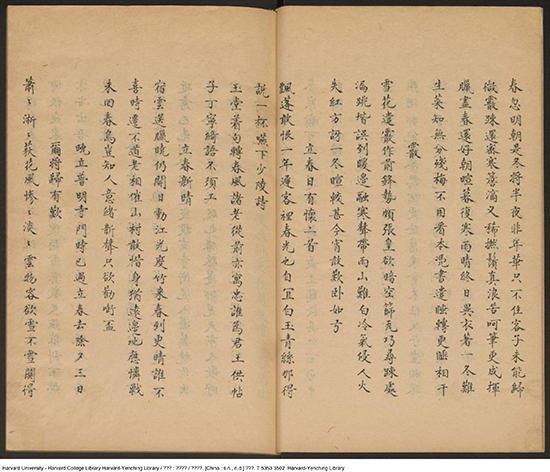 春忽明朝是冬將半夜非年華只不住客子未能歸
微霰疎還密寒簷滴又稀撚鬚真浪苦呵筆更成揮
臘盡春還好朝暄暮復寒雨晴終日異衣著一冬難
生菜知無分殘梅不用看本憑書遣睡轉更睡相干
霰
雪花遣霰作前鋒勢頗張皇欲暗空篩瓦巧尋疎處
漏跳堦誤到暖邊融寒聲帶雨山難白冷氣侵人火
失紅方訝一冬暄較甚今宵敢歎卧如弓
立春日有懷二首
飄蓬敢恨一年遲客裡春光也自宜白玉青絲那得
說一杯嚥下少陵詩
玉堂著句轉春風諸老從前亦寓忠誰為君王供帖
子丁寧綺語不須工
立春新晴
宿雲還臘曉仍開日動江光度竹來春列更晴誰不
喜時還不適老相催山村敢惜身猶遠邊地應憐戰
未回春鳥豈知人意緒新聲只欲勸啣盃
晚立普明寺門時已過立春去除夕三日
爾將歸有歎
蕭〻淅〻荻花風慘〻淡〻雲物容欲雪不雪關得
Harvard University - Harvard College Library Harvard-Yenching Library / ??? : ???? / ????. [China : s.n., n.d.] ???. T 5353 3502 Harvard-Yenching Library